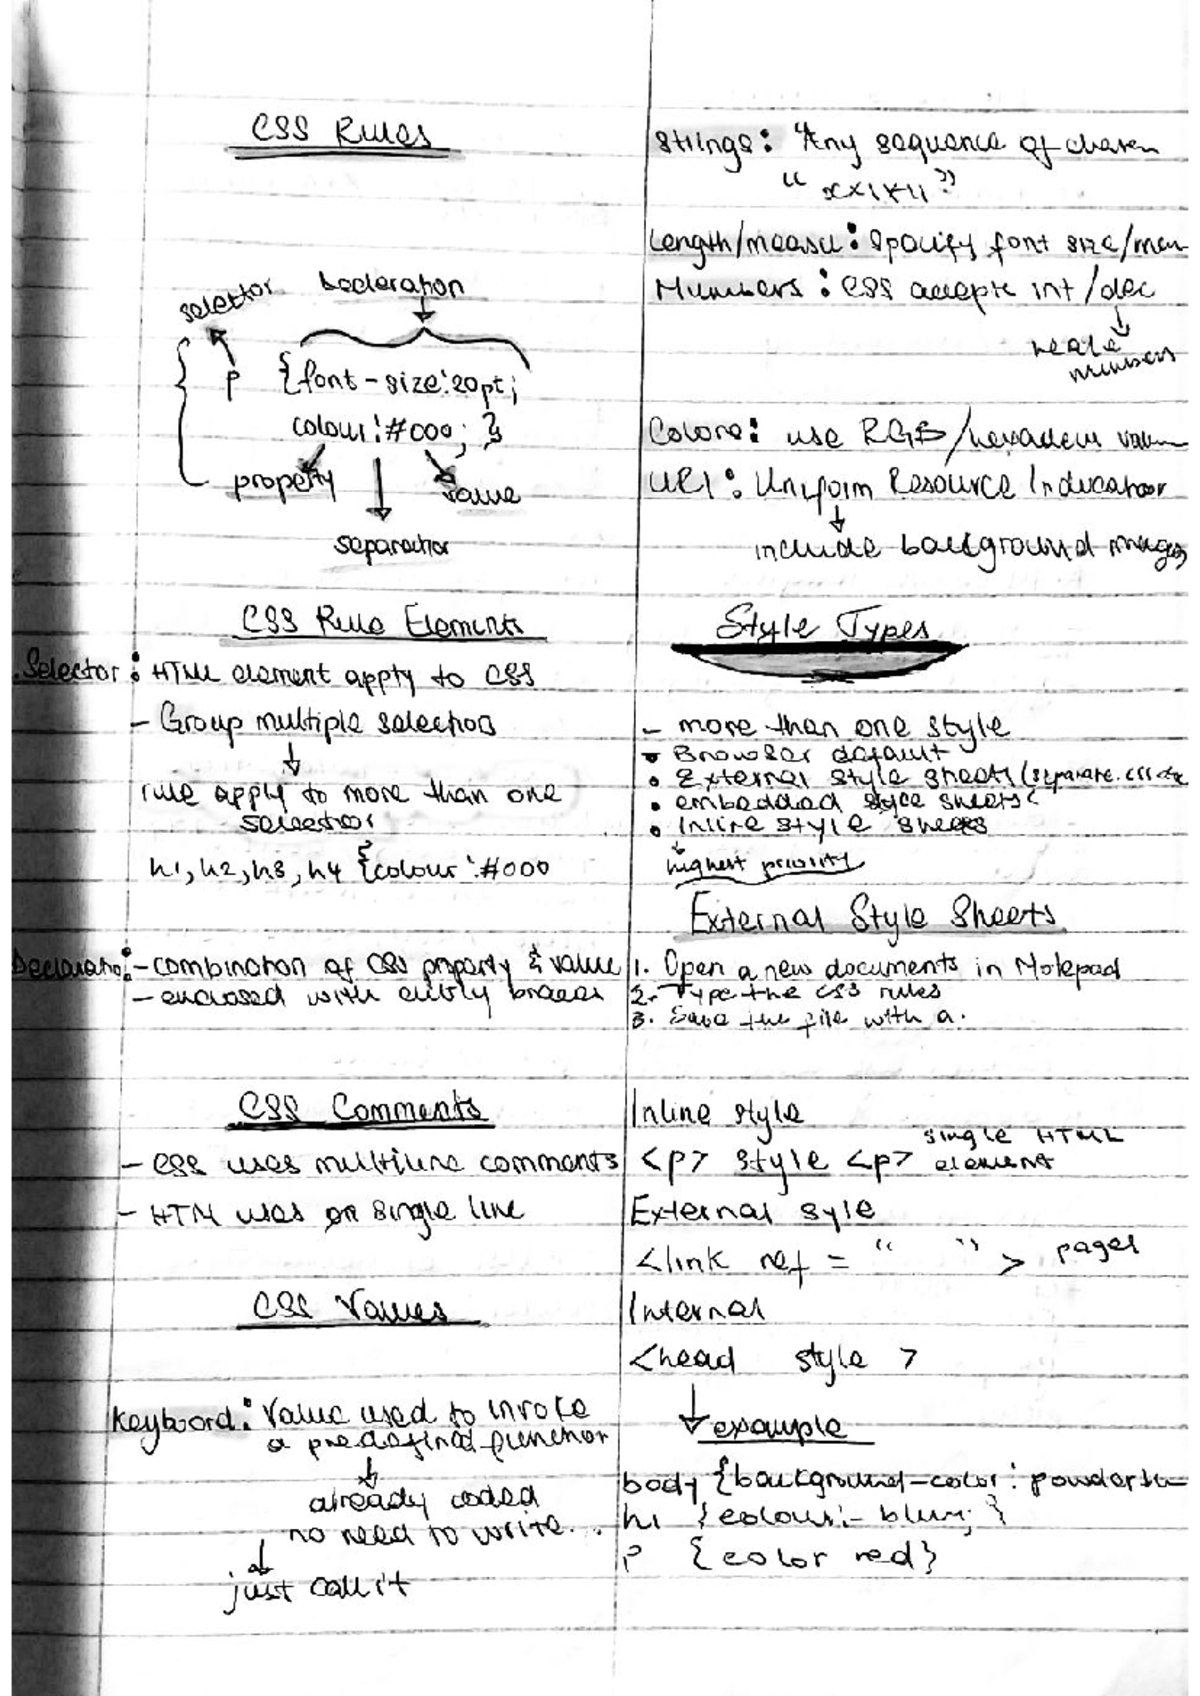 CSS Rules
selector
Decleration
p {font-size:20pt;
colour:#000; }
property
value
separator
CSS Rule Elements
Selector: HTML element apply to CSS
- Group multiple selectors
rule apply to more than one
selector
h1, h2, h3, h4 {colour:#000
Declaratio: - combination of CSS property & value
- enclosed with curly braces
CSS Comments
- CSS uses multiline comments
- HTM uses on single line
CSS Values
Keyboard: Value used to invoke
a predefined function
already coded
no need to write...
just call it
Strings: "Any sequence of
"
"
Length/measu: Specify font size/
Numbers: CSS accepts int/dec
numbers
Colors: use RGB/hexadem
URI: Uniform Resource Indicator
include background
Style Types
- more than one style
• Browser default
• External style sheets (separate.css
• embedded style sheets
• Inline style sheets
highest priority
External Style Sheets
1. Open a new documents in Notepad
2. Type the css rules
3. Save the file with a.
Inline style
<p> style <p> single HTML
element
External syle
<link ref = " " > pages
Internal
<head style >
example
body {background-color:
h1 {colour:- blue; }
P {color red}